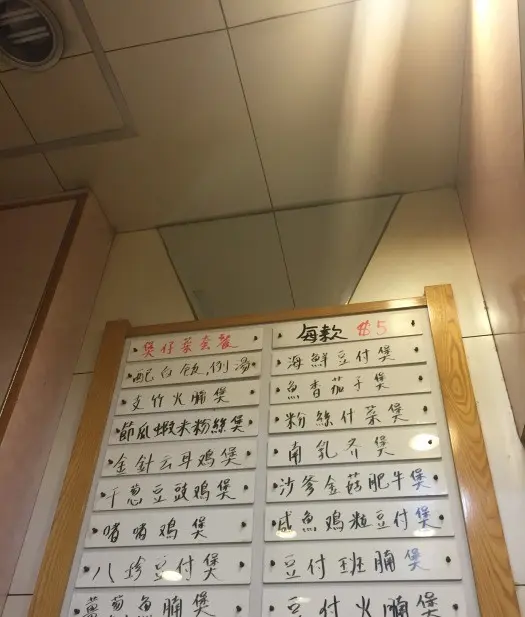 煲仔菜套餐
配白飯,例湯
支竹火腩煲
節瓜蝦米粉絲煲
金針云耳鸡煲
干葱豆豉鸡煲
啫啫鸡煲
八珍豆付煲
薑葱魚腩煲
每款 $5
海鮮豆付煲
魚香茄子煲
粉絲什菜煲
南乳斉煲
沙爹金菇肥牛煲
咸魚鸡粒豆付煲
豆付班腩煲
豆付火腩煲